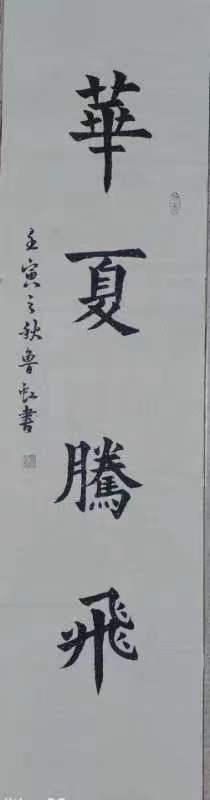 華夏騰飛
壬寅之秋魯虹書